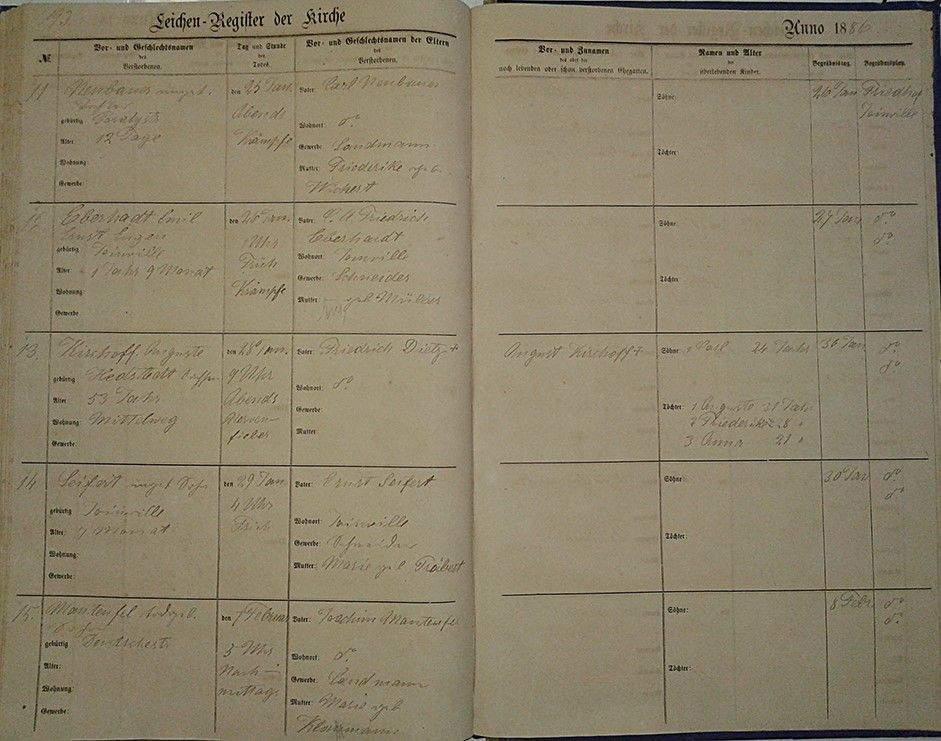 Leichen-Register der Kirche
Anno 1886
№
Vor- und Geschlechtsnamen
des
Verstorbenen.
Tag und Stunde
des
Todes.
Vor- und Geschlechtsnamen der Eltern
des
Verstorbenen.
Vor- und Zunamen
des oder der
noch lebenden oder schon verstorbenen Ehegatten.
Namen und Alter
der
überlebenden Kinder.
Begräbnißtag.
Begräbnißplatz.
11
gebürtig
Alter: 12 Tage
Wohnung:
Gewerbe:
den 25 Jan.
Abends
Krämpfe
Vater: Carl
Wohnort: do
Gewerbe: Landmann
Mutter: Friederike geb.
Wichert
Söhne:
Töchter:
26 Jan
Friedhof
Joinville
12
Eberhadt Emil
Ernst Eugen
gebürtig Joinville
Alter 1 Jahr 9 Monat
Wohnung:
Gewerbe
den 26 Jan.
1 Uhr
Früh
Krämpfe
Vater: C. A. Friedrich
Eberhardt
Wohnort Joinville
Gewerbe: Schneider
Mutter: geb Müller
Söhne:
Töchter:
27 Jan
do
do
13.
Kirchoff Auguste
gebürtig
Alter: 53 Jahr
Wohnung: Mittelweg
Gewerbe:
den 28 Jan.
9 Uhr
Abends
Nerven-
fieber
Vater: Friedrich Dietz +
Wohnort: do
Gewerbe:
Mutter:
August Kirchoff +
Söhne: 24 Jahr
Töchter: 1 Auguste 31 Jahr
2 Friederike 28 "
3 Anna 21 "
30 Jan
do
do
14
Seifert
gebürtig Joinville
Alter: Monat
Wohnung:
Gewerbe:
den 29 Jan
4 Uhr
Früh
Vater: Ernst Seifert
Wohnort: Joinville
Gewerbe: Schneider
Mutter: Marie geb
Söhne:
Töchter:
30 Jan
do
do
15.
Manteufel todgeb.
gebürtig
Alter:
Wohnung:
Gewerbe:
den 7 Februar
5 Uhr
Nach-
mittags
Vater: Joachim Manteufel
Wohnort: do
Gewerbe: Landmann
Mutter: Marie geb
Söhne:
Töchter:
8 Febr
do
do